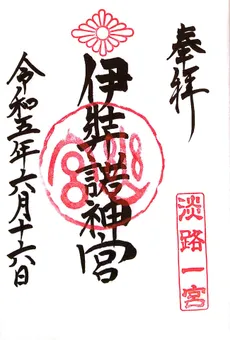 奉拝
淡路一宮
伊弉諾神宮
令和五年六月十六日